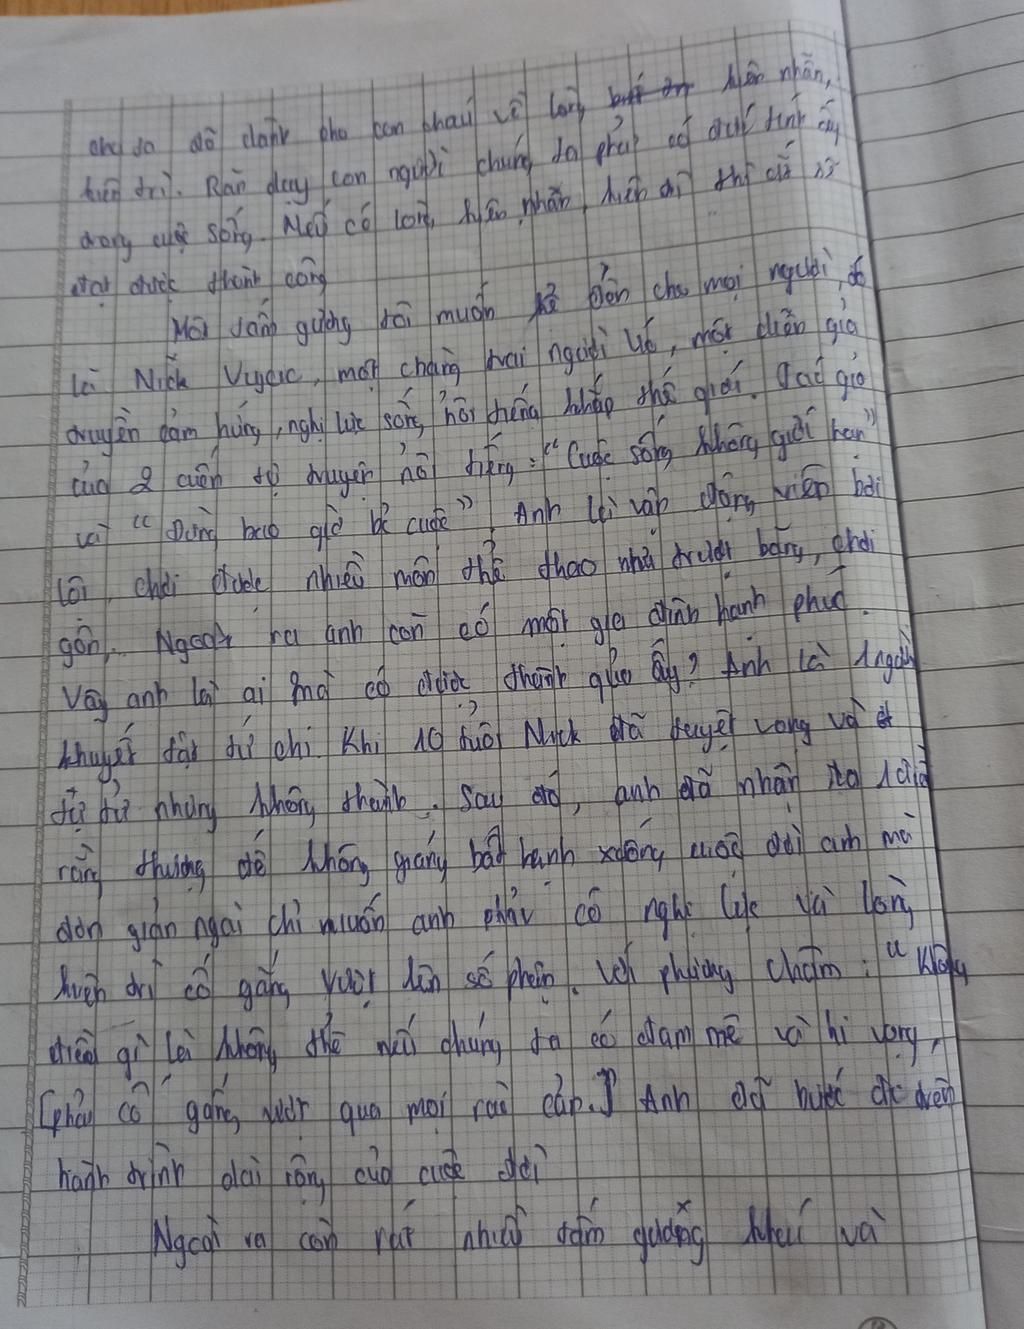 cho ta đó dành cho con cháu về lòng kiên nhẫn,
kiên trì. Răn dạy con người chúng ta phải có đức tính ấy
trong cuộc sống. Nếu có lòng kiên nhẫn, kiên trì thì sẽ
đạt được thành công
Một tấm gương tôi muốn kể đến cho mọi người, đó
là Nick Vujic, một chàng trai người Úc, một diễn giả
truyền cảm hứng, nghị lực sống nổi tiếng khắp thế giới. Tác giả
của 2 cuốn tự truyện nổi tiếng: "Cuộc sống không giới hạn"
và "Đừng bao giờ bỏ cuộc". Anh là vận động viên bơi
lội, chơi được nhiều môn thể thao như trượt băng, chơi
gôn,.. Ngoài ra anh còn có một gia đình hạnh phúc.
Vậy anh là ai mà có được thành quả ấy? Anh là 1 người
khuyết tật tứ chi. Khi 10 tuổi Nick đã tuyệt vọng và
tự tử nhưng không thành. Sau đó, anh đã nhận ra 1 điều
rằng thượng đế không giáng bất hạnh xuống cuộc đời anh mà
đơn giản ngài chỉ muốn anh phải có nghị lực và lòng
kiên trì cố gắng vượt lên số phận. Với phương châm: "Không
điều gì là không thể nếu chúng ta có đam mê và hi vọng,
[phải cố gắng vượt qua mọi rào cản.] Anh đã bước đc trên
hành trình dài rộng của cuộc đời
Ngoài ra còn rất nhiều tấm gương khác và